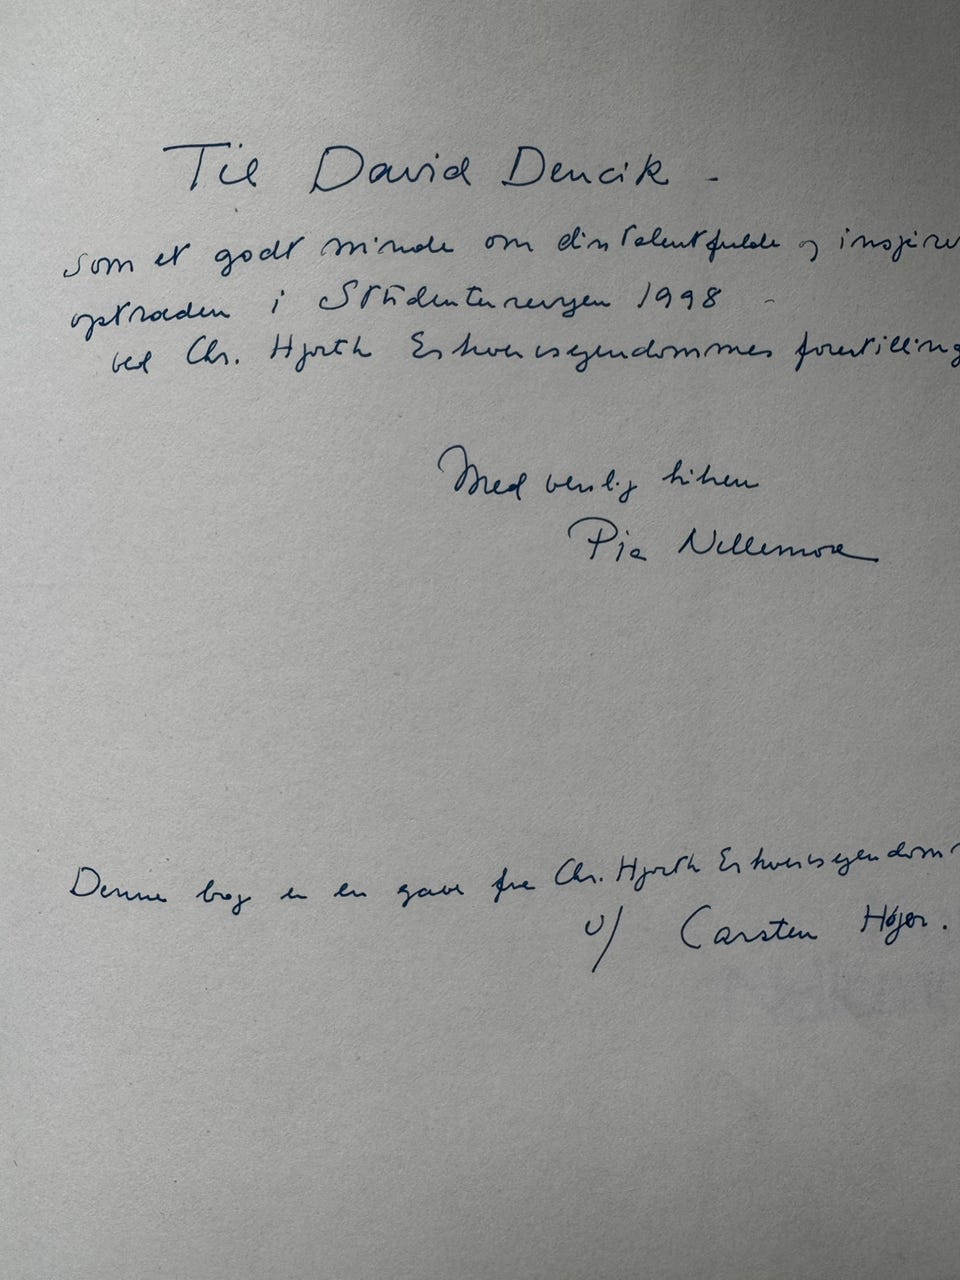 Til David Dencik -
som et godt minde om din talentfulde og inspire
optræden i Studenterrevyen 1998 -
ved Chr. Hjorth Erhvervsejendommes forestilling
Med venlig hilsen
Pia
Denne bog er en gave fra Chr. Hjorth Erhvervsejendom
v/ Carsten Højer.